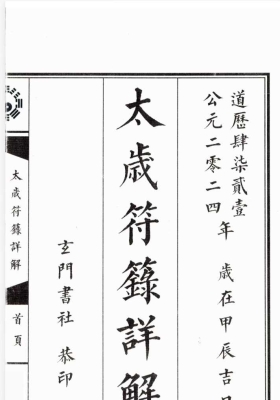 道歷肆柒貳壹
公元二零二四年 歲在甲辰吉日
太歲符籙詳解
玄門書社 恭印
太歲符籙詳解
首頁